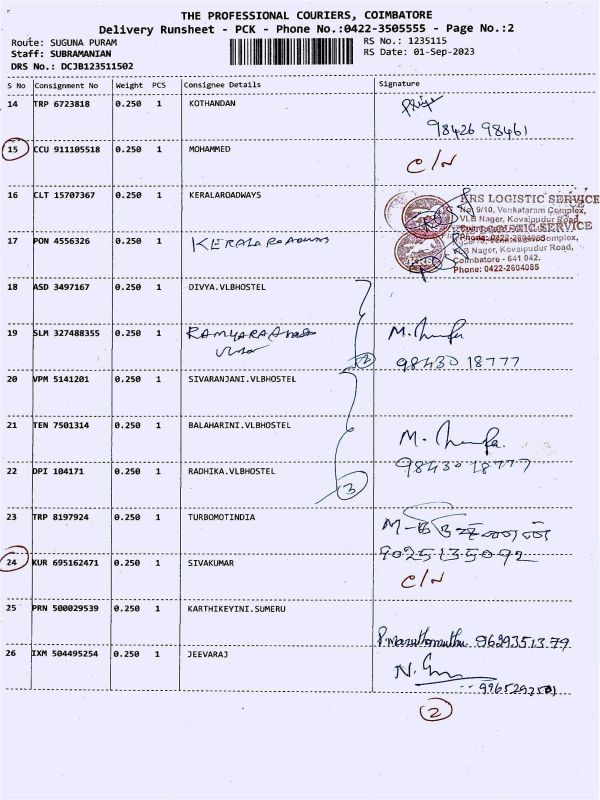 THE PROFESSIONAL COURIERS, COIMBATORE
Delivery Runsheet - PCK - Phone No.:0422-3505555 - Page No.:2
Route: SUGUNA PURAM
RS No.: 1235115
Staff: SUBRAMANIAN
RS Date: 01-Sep-2023
DRS No.: DCJB123511502
S No Consignment No Weight PCS Consignee Details Signature
14 TRP 6723818 0.250 1 KOTHANDAN Priya
98426 98461
15 CCU 911105518 0.250 1 MOHAMMED C/N
16 CLT 15707367 0.250 1 KERALAROADWAYS
KRS LOGISTIC SERVICE
No. 9/10, Venkataram Complex,
VLB Nager, Kovaipudur Road,
17 PON 4556326 0.250 1 KERALA ROADWAYS
VLB Nager, Kovaipudur Road,
Coimbatore - 641 042.
Phone: 0422-2604085
18 ASD 3497167 0.250 1 DIVYA.VLBHOSTEL
19 SLM 327488355 0.250 1 M.
98430 18777
20 VPM 5141201 0.250 1 SIVARANJANI.VLBHOSTEL
21 TEN 7501314 0.250 1 BALAHARINI.VLBHOSTEL M.
98430 18777
22 DPI 104171 0.250 1 RADHIKA.VLBHOSTEL
3
23 TRP 8197924 0.250 1 TURBOMOTINDIA M-
9025135092
24 KUR 695162471 0.250 1 SIVAKUMAR C/N
25 PRN 500029539 0.250 1 KARTHIKEYINI.SUMERU
P. Maruthamuthu 9629351379
26 IXM 504495254 0.250 1 JEEVARAJ N.
2